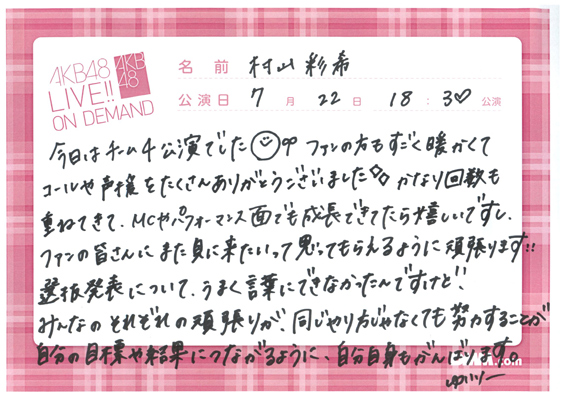 AKB48
LIVE!!
ON DEMAND
AKB
48
名前 村山彩希
公演日 7月22日 18:30公演
今日はチーム4公演でした ファンの方もすごく暖かくて
コールや声援をたくさんありがとうございました かなり回数も
重ねてきて、MCやパフォーマンス面でも成長できてたら嬉しいですし、
ファンの皆さんにまた見に来たいって思ってもらえるように頑張ります!!
選抜発表について、うまく言葉にできなかったんですけど、
みんなのそれぞれの頑張りが、同じやり方じゃなくても努力することが
自分の目標や結果につながるように、自分自身もがんばります。
.com